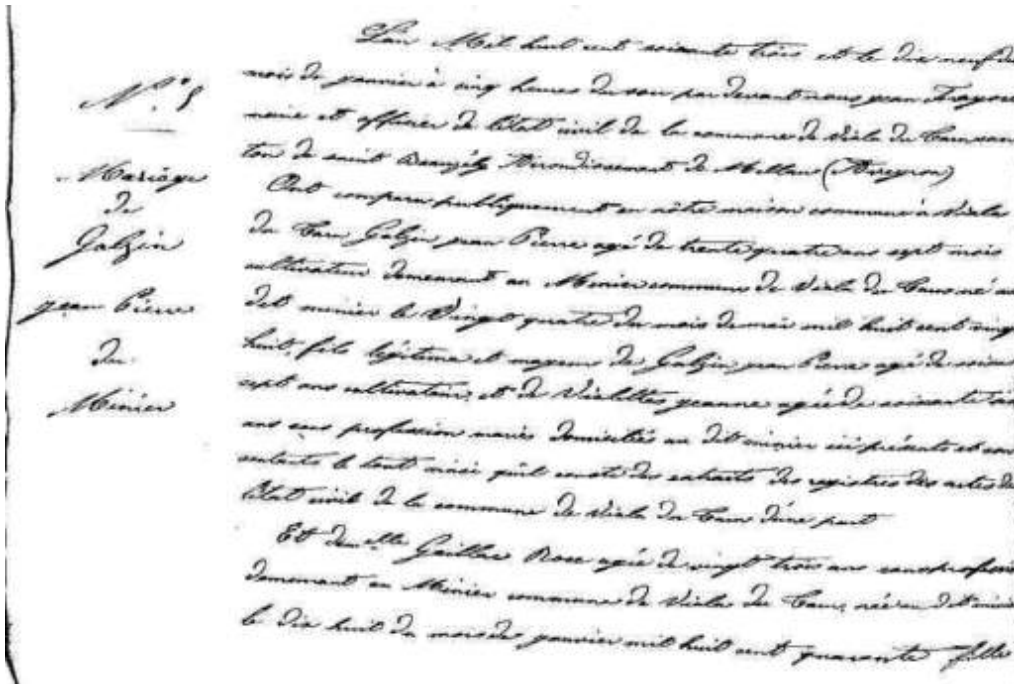 N° 5
Mariage
de
Galzin
jean Pierre
du
Minier
L'an Mil huit cent soixante trois et le dix neuf du
mois de janvier à cinq heures du soir par devant nous jean
maire et officier de l'état civil de la commune de Viala du Tarn can
ton de saint Beauzély Arrondissement de Millau (Aveyron)
Ont comparu publiquement en nôtre maison commune à Viala
du Tarn Galzin jean Pierre agé de trente quatre ans sept mois
cultivateur demeurant au Minier commune de Viala du Tarn né au
dit minier le Vingt quatre du mois de mai mil huit cent vingt
huit, fils légitime et majeur de Galzin jean Pierre agé de soixante
sept ans cultivateur, et de Violettes jeanne agée de soixante
ans sans profession mariés domiciliés au dit minier ici présents et con
sentants le tout ainsi qu'il conste des extraits des registres des actes de
l'état civil de la commune de Viala du Tarn d'une part
Et demelle Gaillac Rose agée de vingt trois ans sans profession
demeurant au Minier commune de Viala du Tarn, née au dit minier
le dix huit du mois de janvier mil huit cent quarante fille